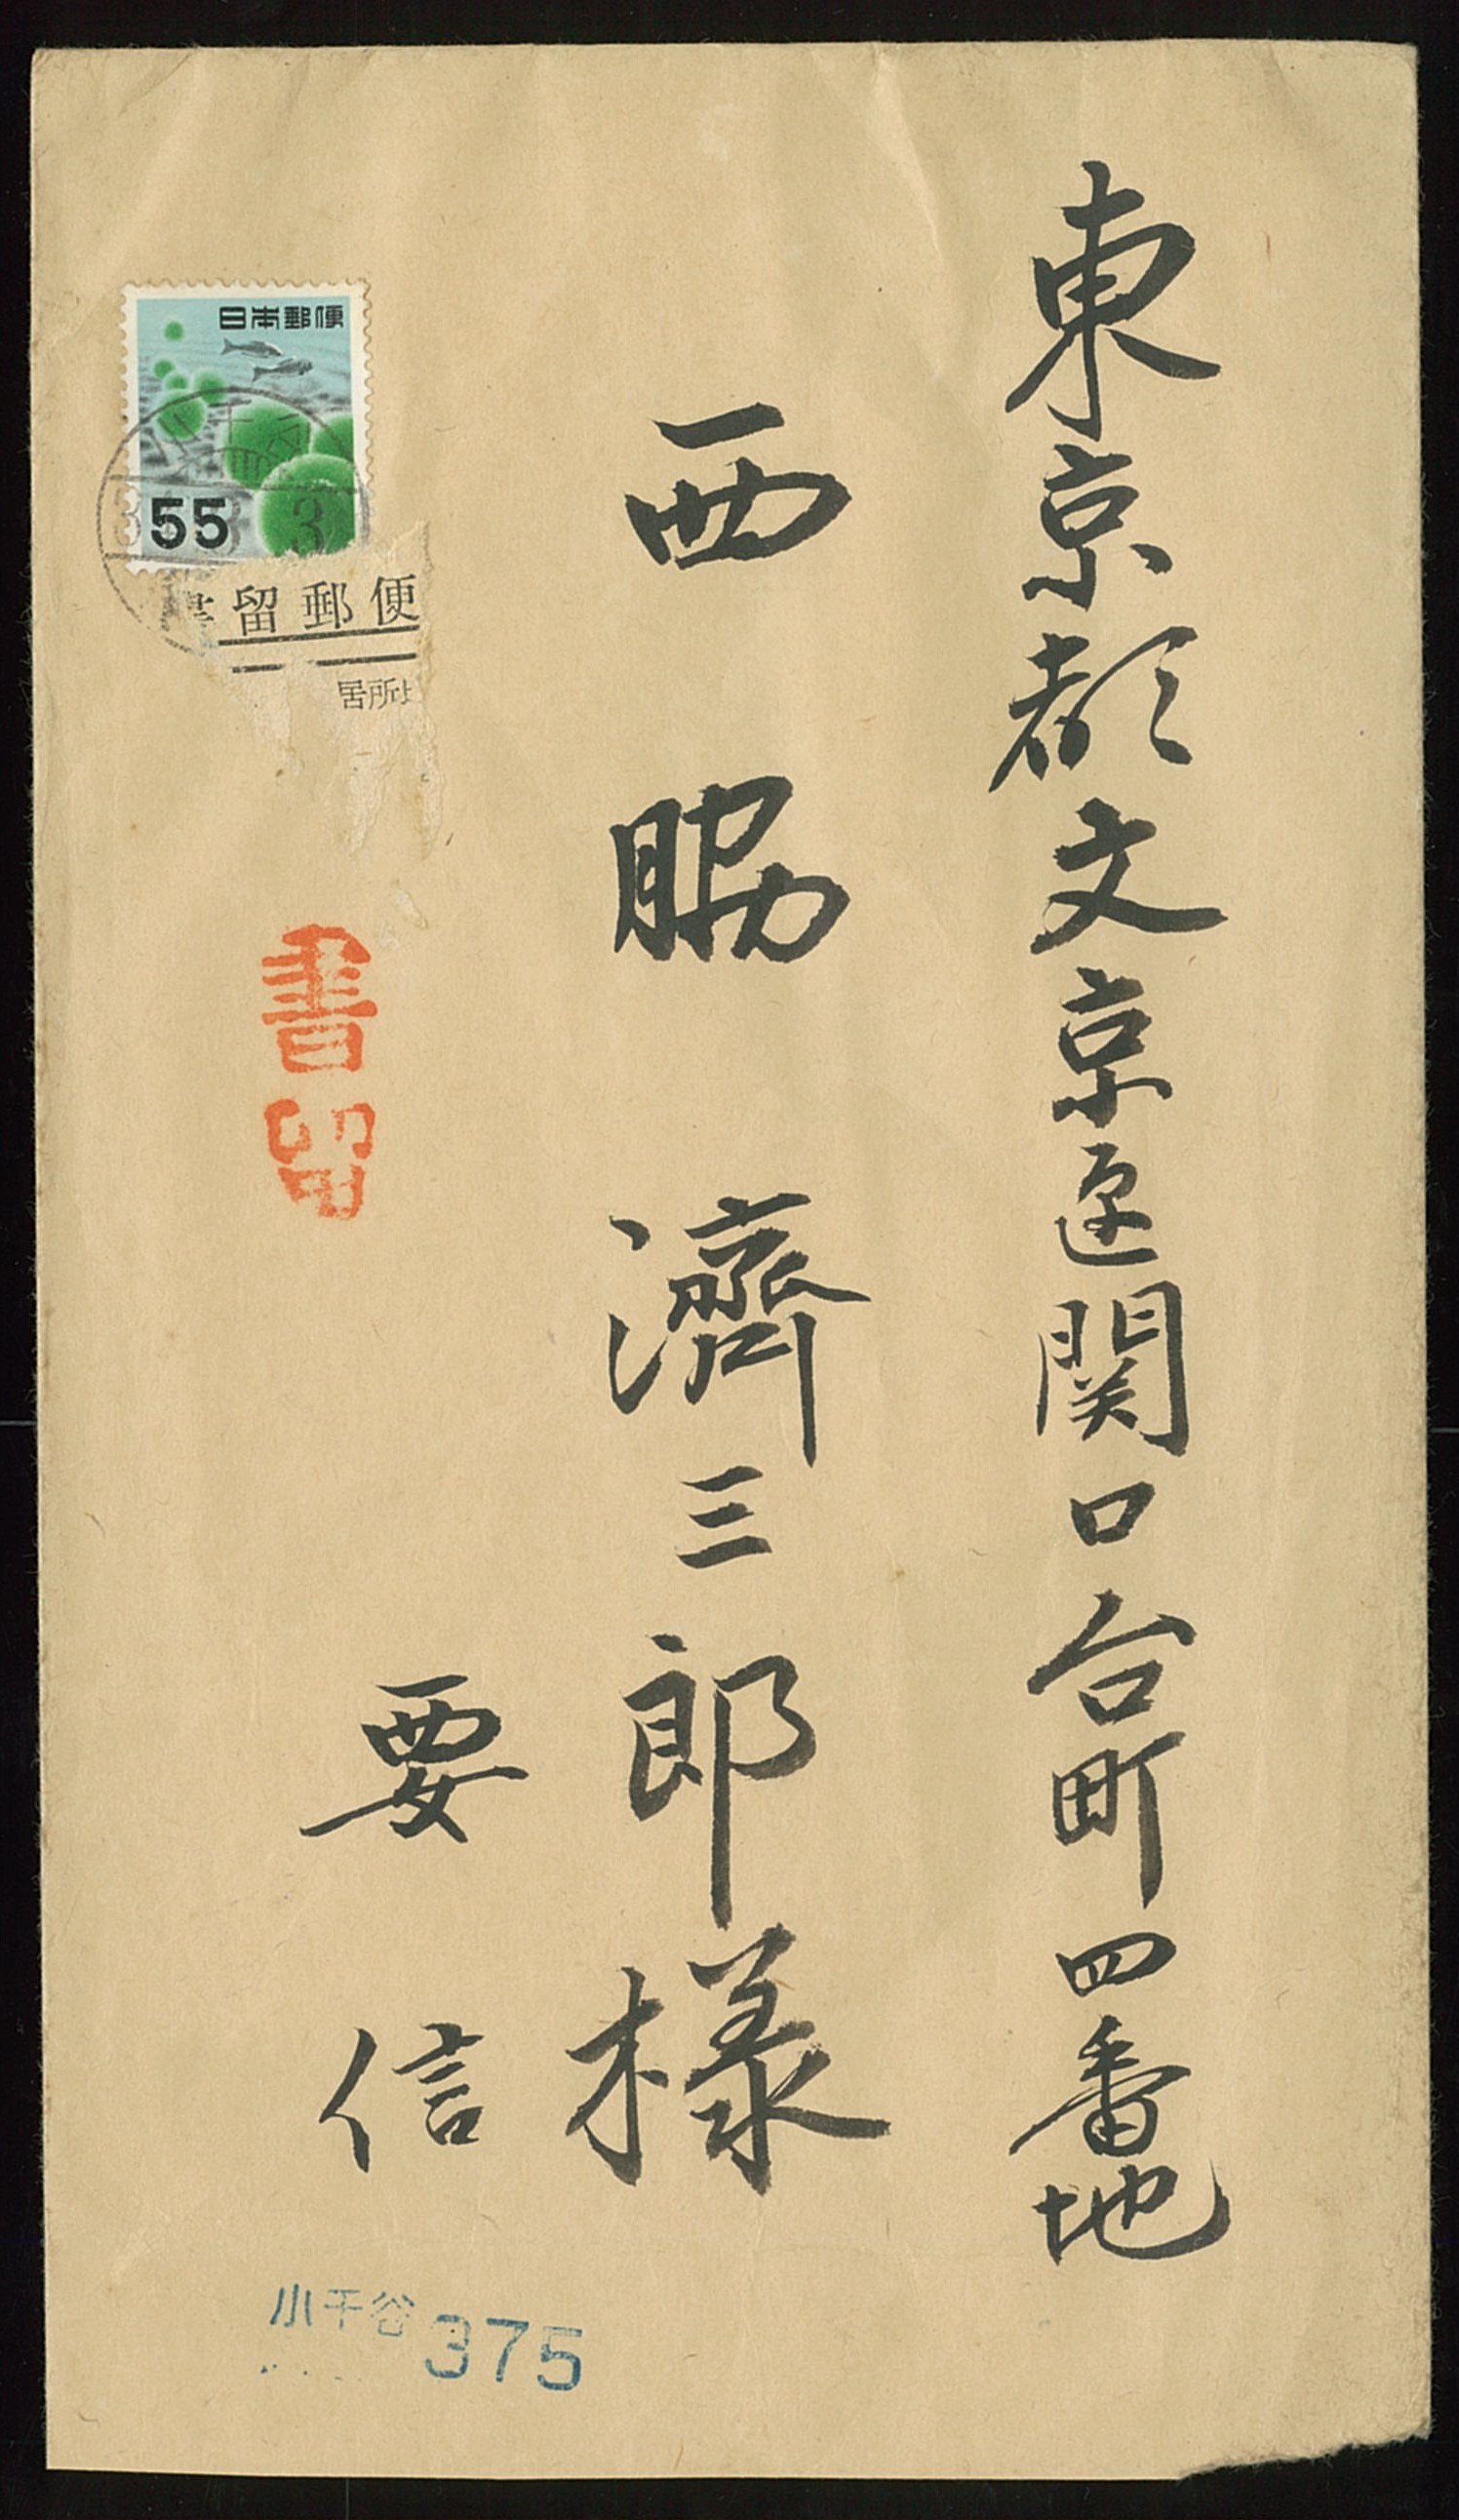 東京都文京区関口台町四番地
西脇濟三郎様
要信
日本郵便
55
3 3
留郵便
居所
書留
小千谷 375